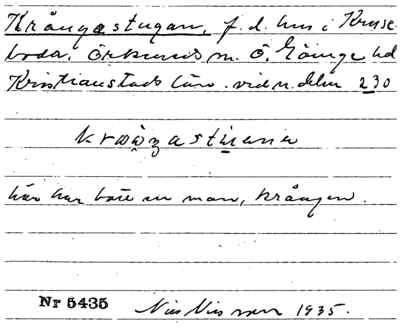 Krångastugan, f.d. hus i Kruse-
boda, Örkeneds sn. Ö. Göinge hd
Kristianstads län. vid n. delen 230
här har bott en man, Krången.
Nr 5435 Nils Nilsson 1935.